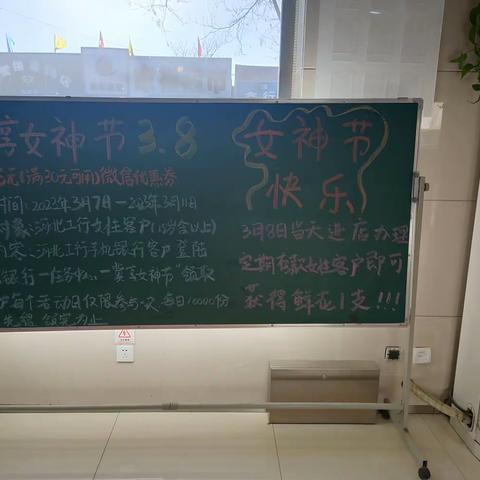 享女神节3.8
元(满30元可用)微信优惠券
时间:2023年3月7日-2023年3月11日
对象:河北工行女性客户(18岁含以上)
内容:河北工行手机银行客户登陆
银行-任务中心-"赏女神节"领取
每个活动日仅限参与一次 每日10000份
先得 领完为止
女神节
快乐
3月8日当天进店办理
定期存款女性客户即可
获得鲜花1支!!!